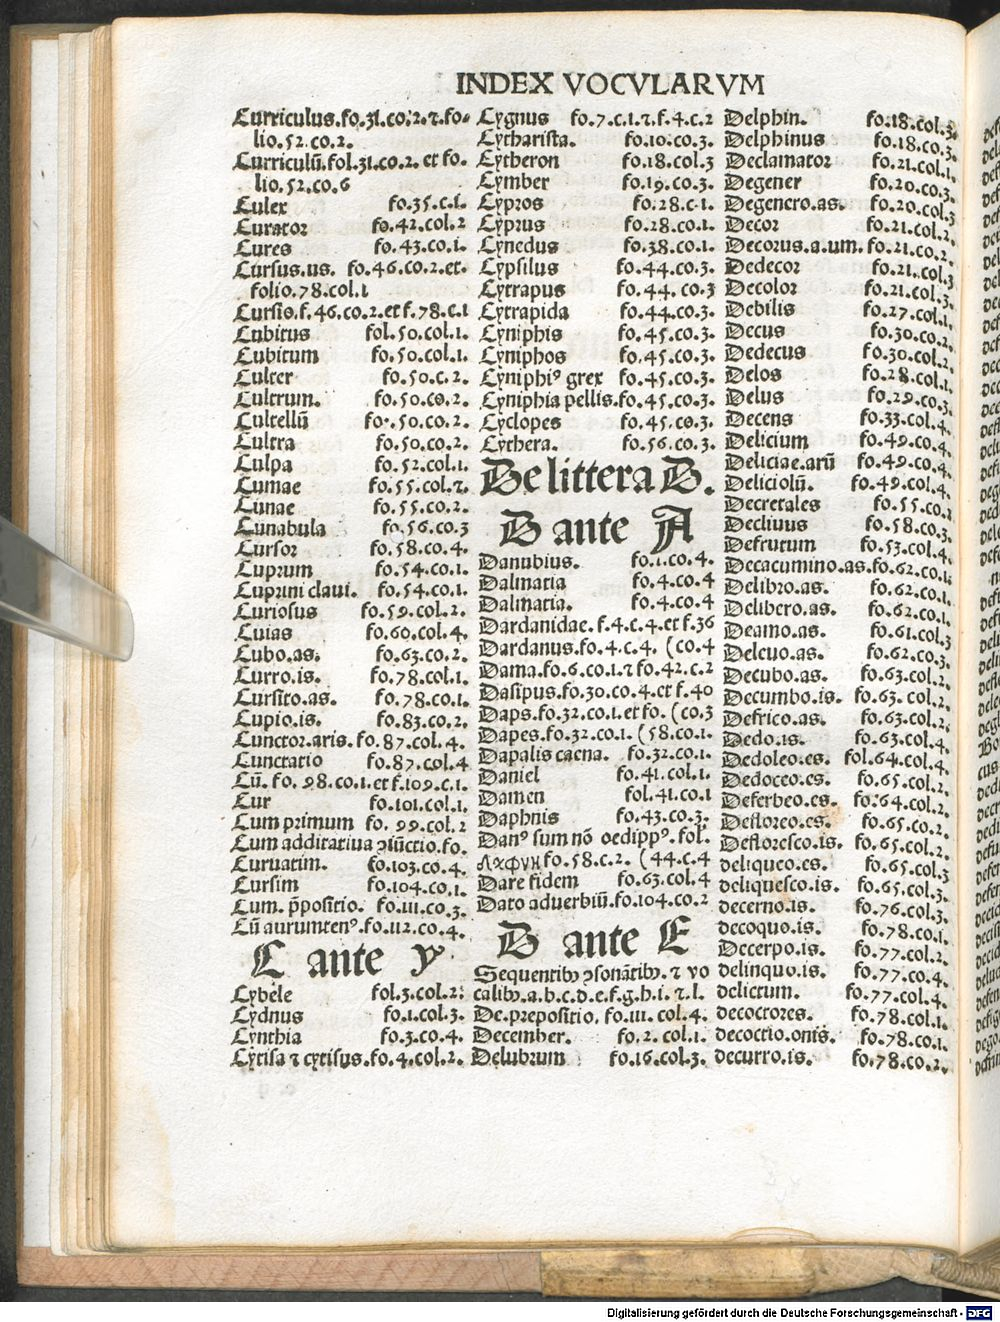 INDEX VOCVLARVM
Curriculus.fo.31.co.2.⁊.fo-
lio.52.co.2.
Curriculū.fol.31.co.2. et fo.
lio.52.co.6
Culex fo.35.c.1.
Curator fo.42.col.2
Cures fo.43.co.1.
Cursus.us. fo.46.co.2.et.
folio.78.col.1
Cursio.f.46.co.2.et f.78.c.1
Cubitus fol.50.col.1.
Cubitum fo.50.col.1.
Culter fo.50.c.2.
Cultrum. fo.50.co.2.
Cultellū fo.50.co.2.
Cultra fo.50.co.2.
Culpa fo.52.col.1.
Cumae fo.55.col.2.
Cunae fo.55.co.2.
Cunabula fo.56.co.3
Cursor fo.58.co.4.
Cuprum fo.54.co.1.
Cuprini claui. fo.54.co.1.
Curiosus fo.59.col.2.
Cuias fo.60.col.4.
Cubo.as. fo.63.co.2.
Curro.is. fo.78.col.1.
Cursito.as. fo.78.co.1.
Cupio.is. fo.83.co.2.
Cunctor.aris. fo.87.col.4.
Cunctatio fo.87.col.4
Cū. fo.98.co.1.et f.109.c.1.
Cur fo.101.col.1.
Cum primum fo.99.col.2
Cum additatiua ↄiūctio.fo.
Curuatim. fo.103.co.4.
Cursim fo.104.co.1.
Cum.p̄positio. fo.111.co.3.
Cū aurumtenꝰ.fo.112.co.4.
C ante y
Cybele fol.3.col.2.
Cydnus fo.1.col.3.
Cynthia fo.3.co.4.
Cytisa ⁊ cytisus.fo.4.col.2.
Cygnus fo.7.c.1.⁊.f.4.c.2
Cytharista. fo.10.co.3.
Cytheron fo.18.col.3
Cymber fo.19.co.3.
Cypros fo.28.c.1.
Cyprus fo.28.co.1.
Cynedus fo.38.co.1.
Cypsilus fo.44.co.3.
Cytrapus fo.44.co.3
Cytrapida fo.44.co.3.
Cyniphis fo.45.co.3.
Cyniphos fo.45.co.3.
Cyniphiꝰ grex fo.45.co.3.
Cyniphia pellis.fo.45.co.3.
Cyclopes fo.45.co.3.
Cythera. fo.56.co.3.
De littera D.
D ante A
Danubius. fo.1.co.4.
Dalmatia fo.4.co.4
Dalmaria. fo.4.co.4
Dardanidae. f.4.c.4.et f.36
Dardanus.fo.4.c.4. (co.4
Dama.fo.6.co.1.⁊ fo.42.c.2
Dasipus.fo.30.co.4.et f.40
Daps.fo.32.co.1.et fo. (co.3
Dapes.fo.32.co.1. (58.co.1.
Dapalis caena. fo.32.co.1.
Daniel fo.41.col.1.
Damen fol.41.co.1
Daphnis fo.43.co.3.
Danꝰ sum nō oedippꝰ.fol.
fo.58.c.2. (44.c.4
Dare fidem fo.63.col.4
Dato aduerbiū.fo.104.co.2
D ante E
Sequentibꝰ ↄsonātibꝰ. ⁊ vo
calibꝰ.a.b.c.d.e.f.g.h.i.⁊.l.
De.prepositio. fo.111.col.4.
December. fo.2.col.1.
Delubrum fo.16.col.3.
Delphin. fo.18.col.3.
Delphinus fo.18.co.3.
Declamator fo.21.col.1.
Degener fo.20.co.3.
Degenero.as. fo.20.col.3
Decor fo.21.col.2.
Decorus.a.um. fo.21.co.2.
Dedecor fo.21.col.3
Decolor fo.21.col.3.
Debilis fo.27.col.1.
Decus fo.30.co.2.
Dedecus fo.30.col.2.
Delos fo.28.col.1.
Delus fo.29.co.3.
Decens fo.33.col.4.
Delicium fo.49.co.4.
Deliciae.arū fo.49.co.4.
Deliciolū. fo.49.col.4.
Decretales fo.55.co.2
Decliuus fo.58.co.3.
Defrutum fo.53.col.4.
Decacumino.as.fo.62.co.1.
Delibro.as. fo.62.co.1.
Delibero.as. fo.62.co.1.
Deamo.as. fo.61.col.3
Deleuo.as. fo.62.co.3.
Decubo.as. fo.63.col.2.
Decumbo.is. fo.63.col.2.
Defrico.as. fo.63.col.2.
Dedo.is. fo.63.col.4.
Dedoleo.es. fol.64.col.4.
Dedoceo.es. fo.65.col.2.
Deferbeo.es. fo.64.col.2.
Defloreo.es. fo.65.co.2.
Defloresco.is. fo.65.col.2.
deliqueo.es. fo.65.col.3
deliquesco.is. fo.65.col.3.
decerno.is. fo.76.col.3.
decoquo.is. fo.78.co.1.
Decerpo.is. fo.77.col.2.
delinquo.is. fo.77.co.4.
delictum. fo.77.col.4.
decoctores. fo.78.col.1.
decoctio.onis. fo.78.co.1.
decurro.is. fo.78.co.2.
Digitalisierung gefördert durch die Deutsche Forschungsgemeinschaft - DFG